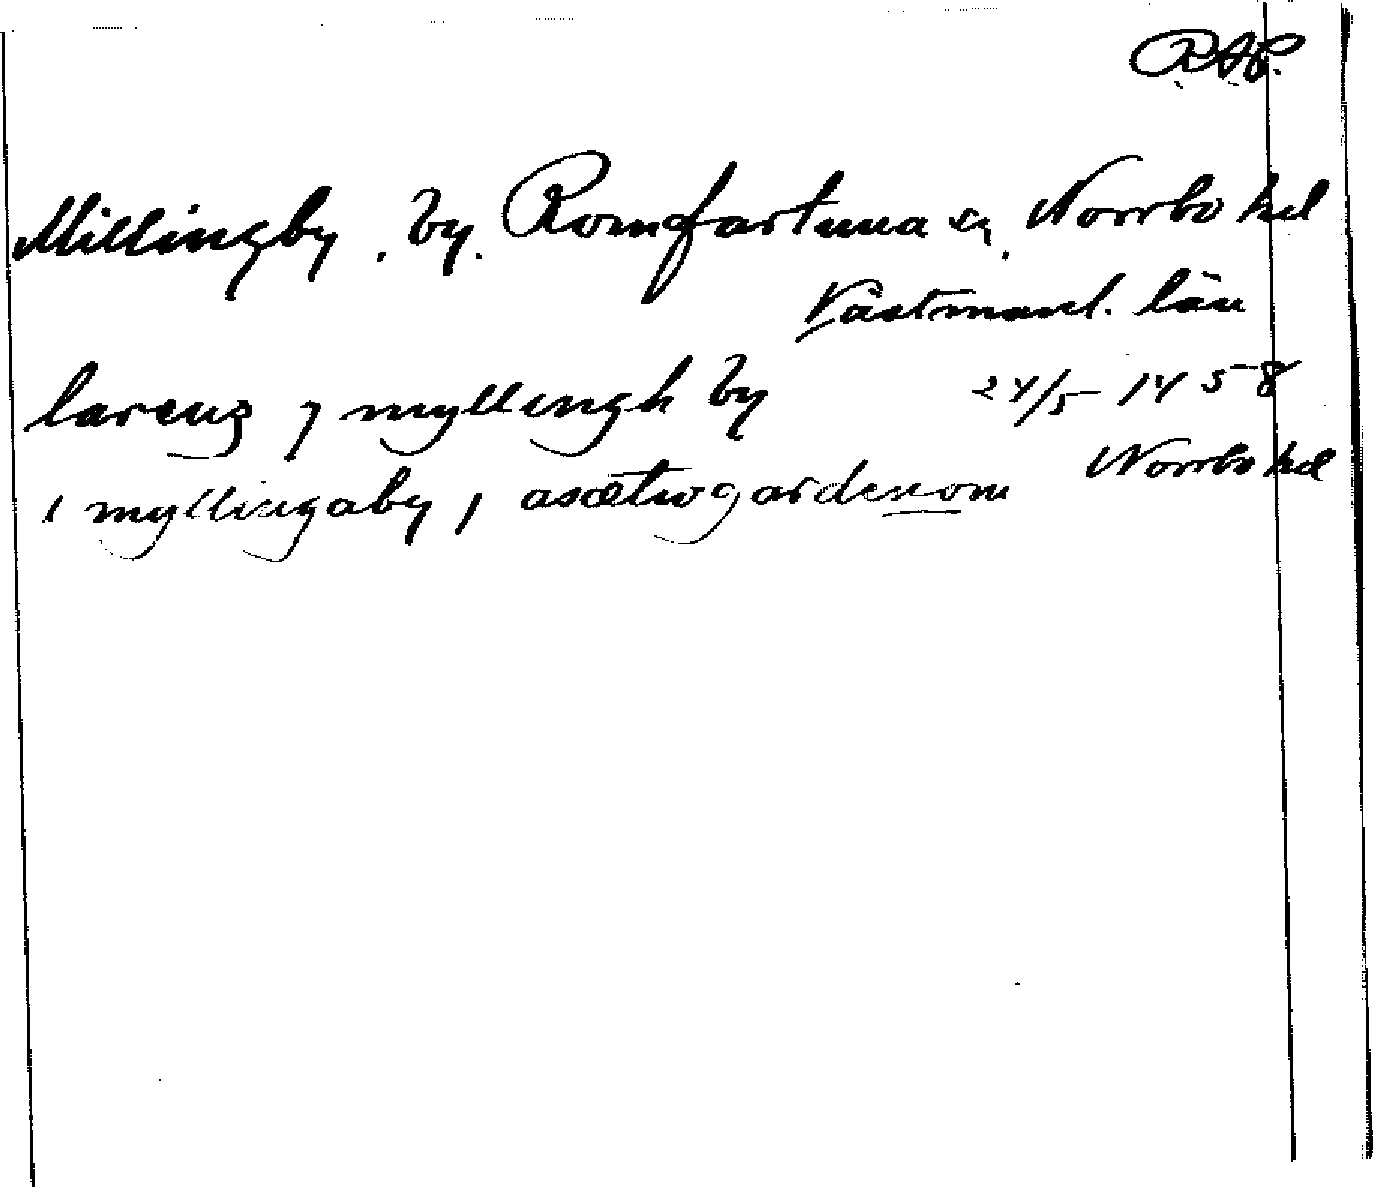 RAP.
Millingby. by. Romfartuna sn, Norrbo hd
Västmanl. län
larens j myllingh by 24/5 1458
Norrbo hd
i myllingaby j asætwgardenom